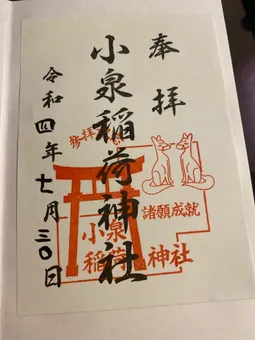 奉拝
小泉稲荷神社
令和四年七月三〇日
参拝
諸願成就
小泉
稲荷神社